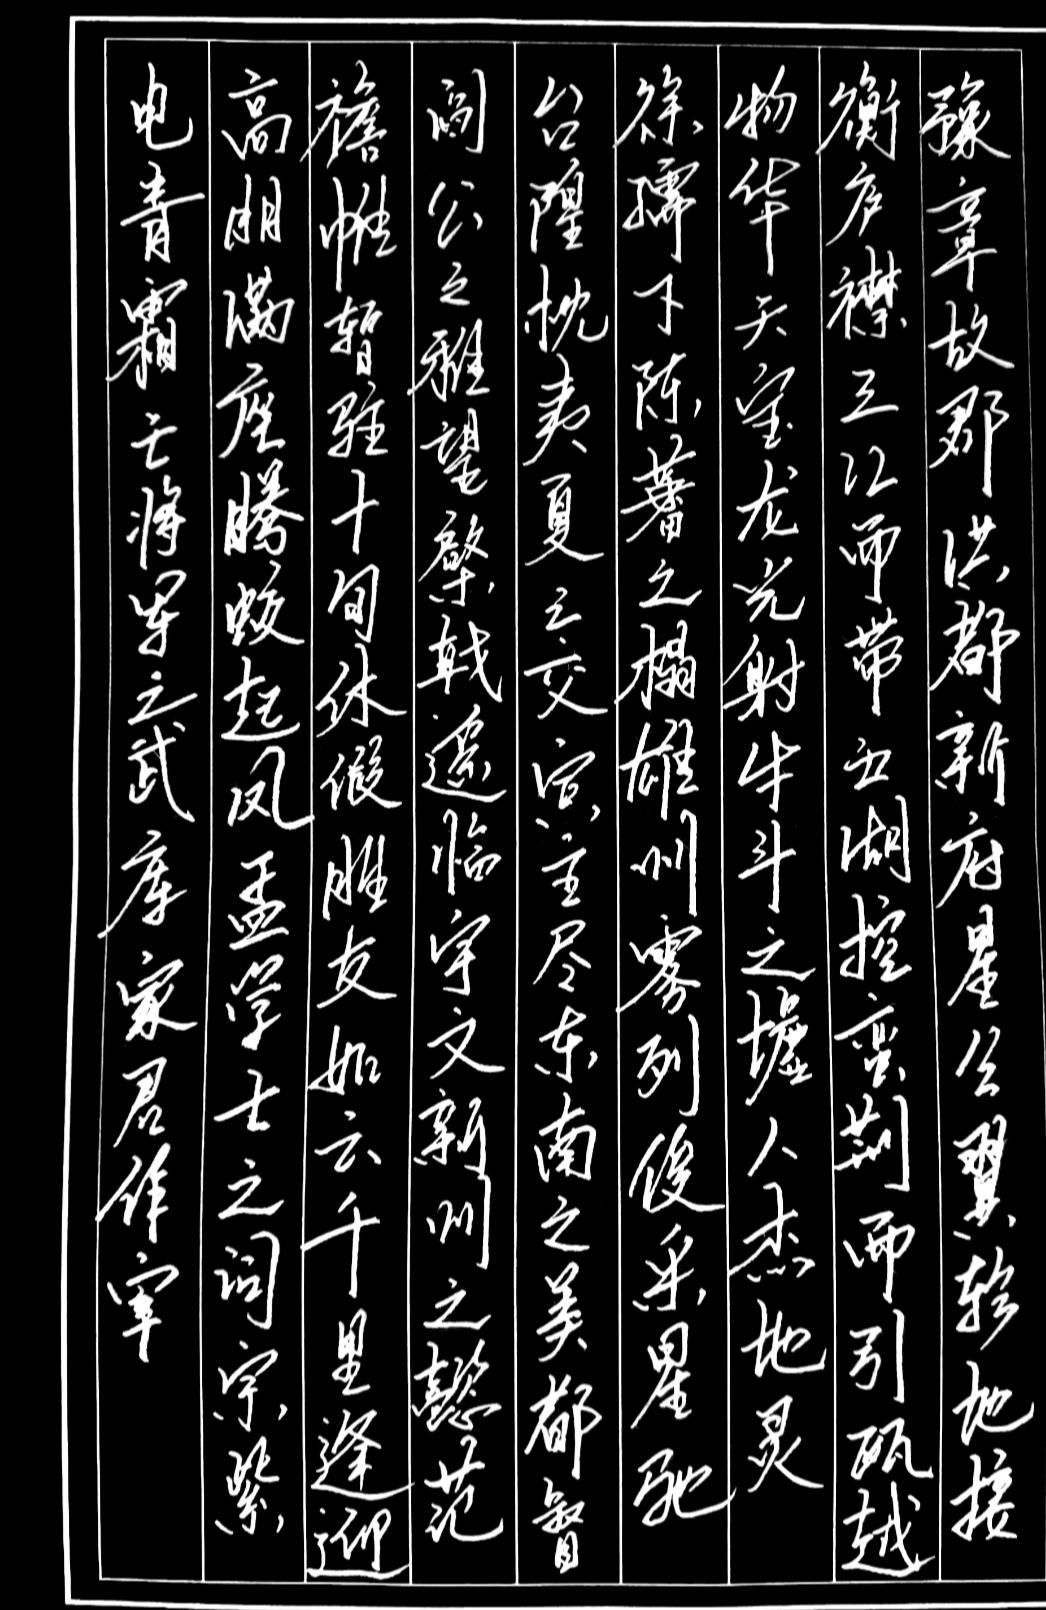 豫章故郡洪都新府星分翼轸地接
衡庐襟三江而带五湖控蛮荆而引瓯越
物华天宝龙光射牛斗之墟人杰地灵
徐孺下陈蕃之榻雄州雾列俊采星驰
台隍枕夷夏之交宾主尽东南之美都督
阎公之雅望棨戟遥临宇文新州之懿范
襜帷暂驻十旬休假胜友如云千里逢迎
高朋满座腾蛟起凤孟学士之词宗紫
电青霜王将军之武库家君作宰